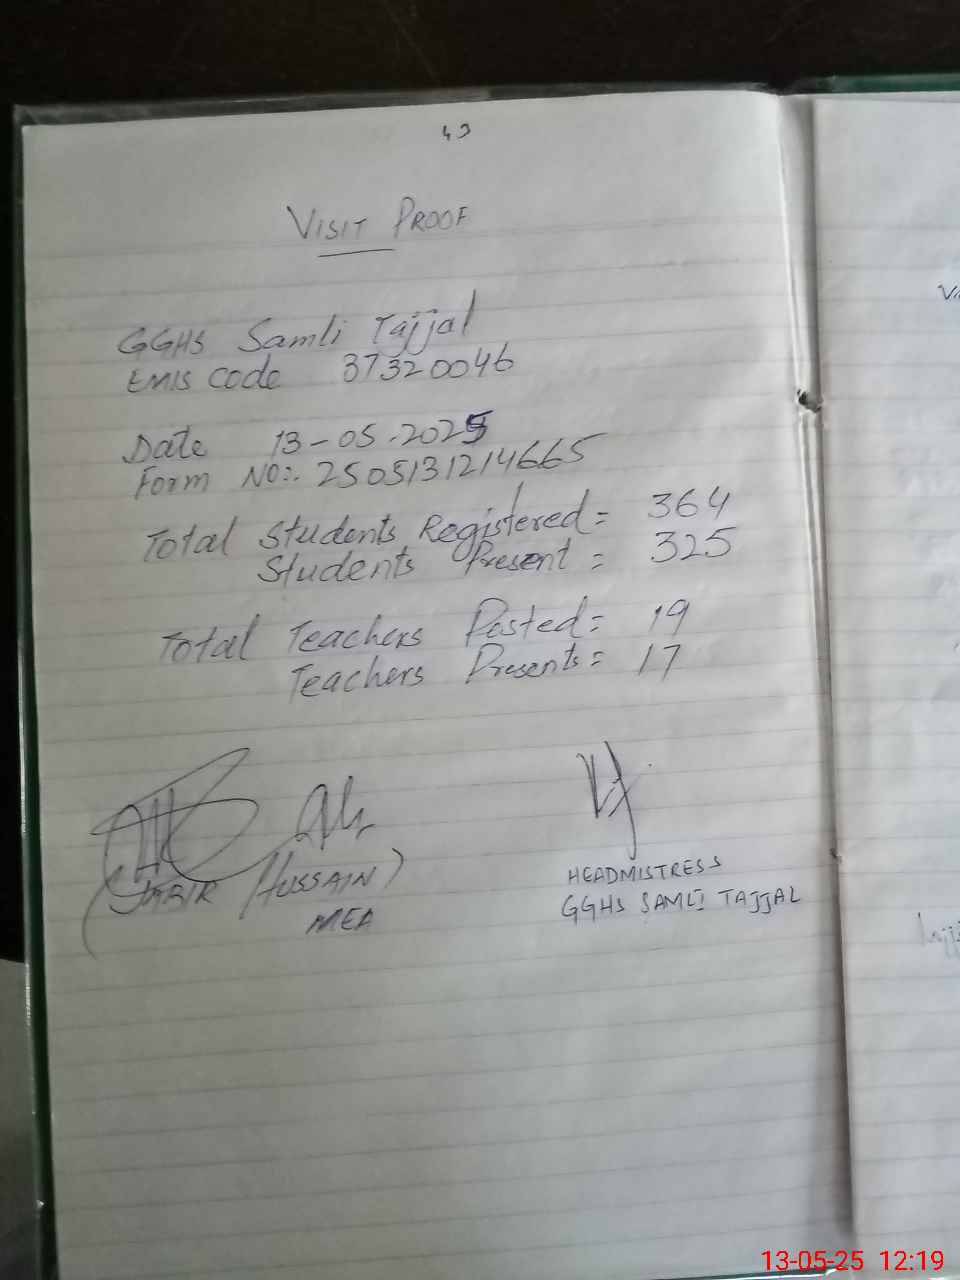 43
VISIT PROOF
GGHS Samli Tajjal
EMIS Code 37320046
Date 13-05-2025
Form NO:. 2505131214665
Total Students Registered = 364
Students Present = 325
Total Teachers Posted = 19
Teachers Presents = 17
(JABIR HUSSAIN)
MEA
HEADMISTRESS
GGHS SAMLI TAJJAL
13-05-25 12:19